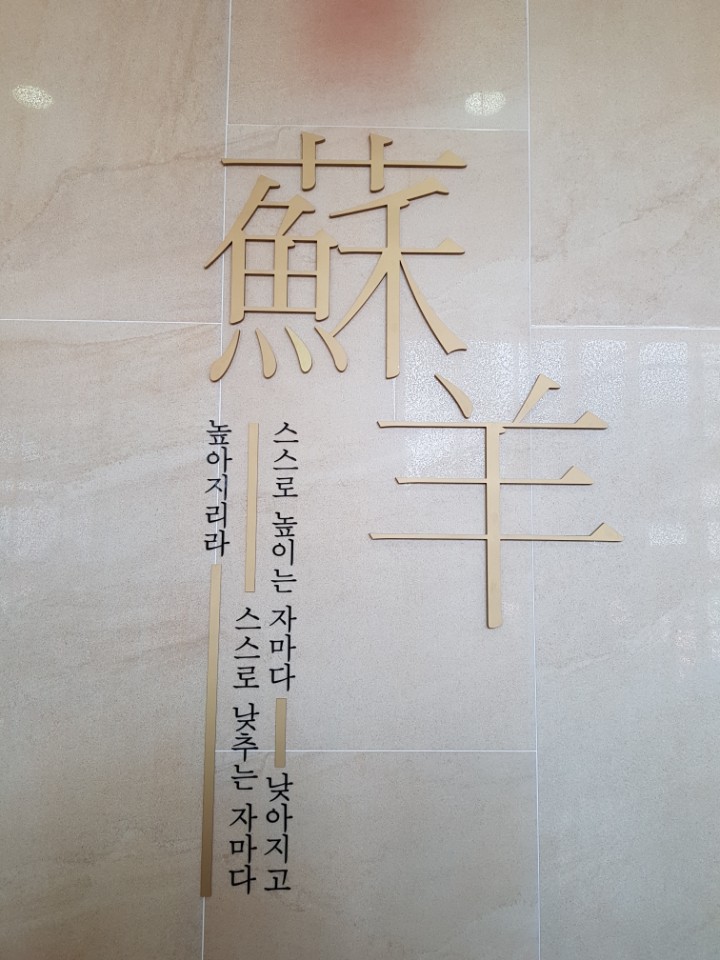 蘇羊
스스로 높이는 자마다 낮아지고
스스로 낮추는 자마다
높아지리라